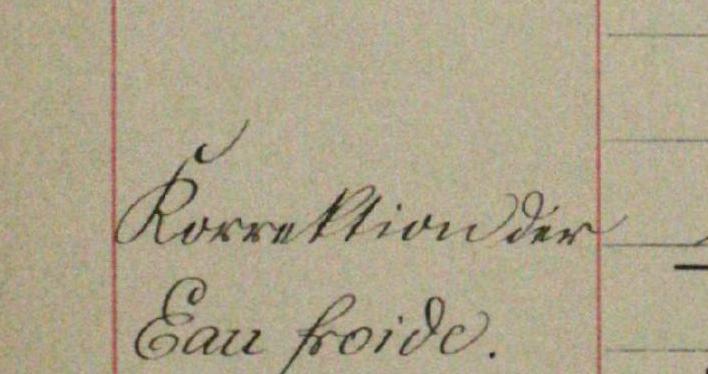 Korrektion der
Eau froide.